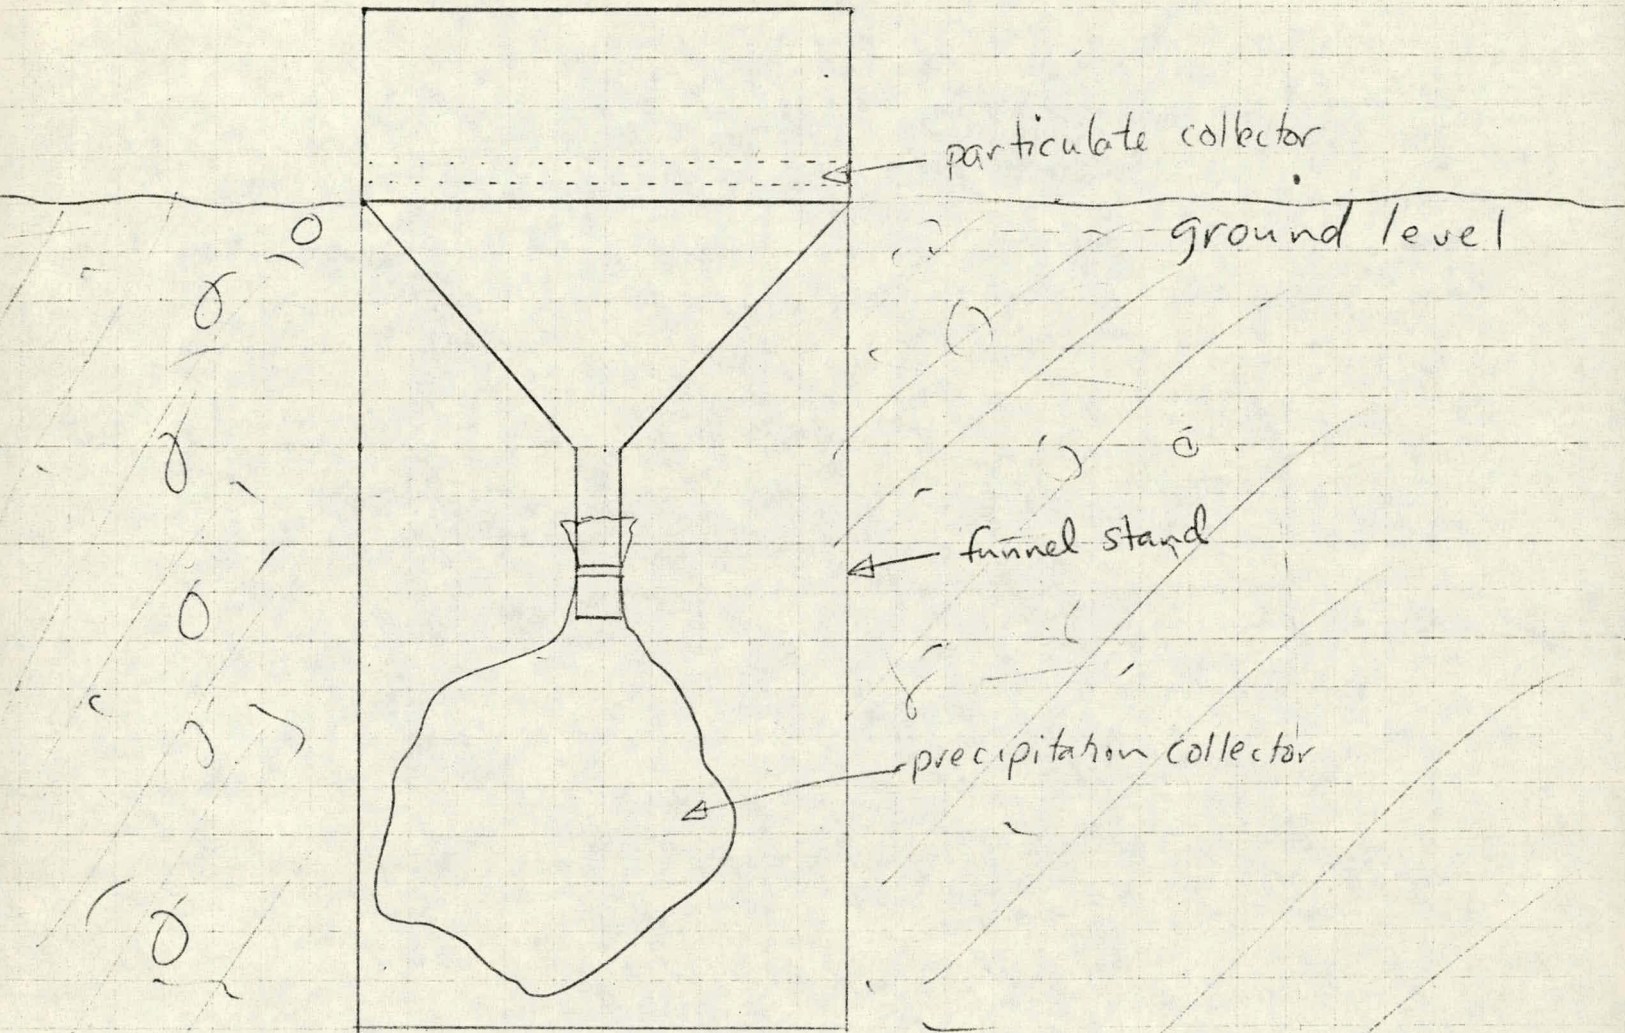 particulate collector
ground level
funnel stand
precipitation collector